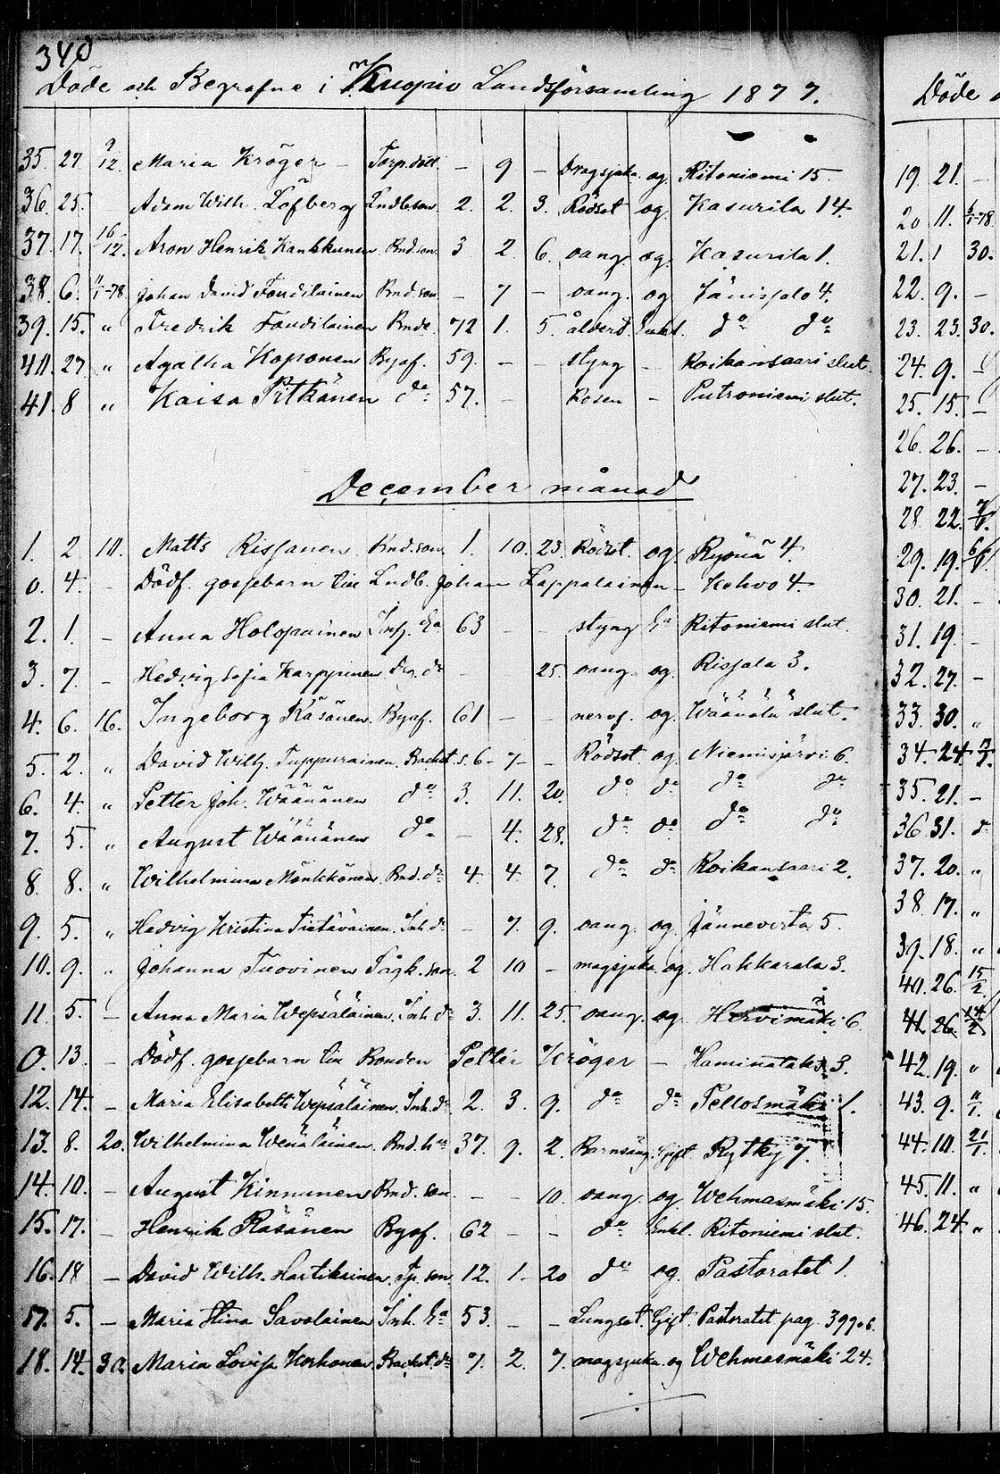 340
Döde och Begrafne i Kuopio Landsförsamling 1877.
35. 27. 9/12. Maria Kröger – Torp.dott. – 9 – Dragsjuka og. Ritoniemi 15
36. 25. Adam Wilh. Löfberg Lndb.son 2. 2. 3. Rödsot og. Kasurila 14
37. 17. 16/12. Aron Henrik Kankkunen Bnd.son. 3 2 6. oang. og. Kasurila 1.
38. 6. 11/1-78 Johan David Bnd.son. – 7 – oang. og Jänissalo 4.
39. 15. " Fredrik Bnde. 72 1. 5. ålderd. do do
40. 27. " Agatha Koponen Bysf. 59. – – styng – Koikansaari slut.
41. 8 " Kaisa Pitkänen do 57. – Rosen – Putroniemi slut.
December månad
1. 2 10. Matts Rissanen Bnd.son 1. 10. 23. Rödsot og. Ryönä 4
0. 4. – Dödf. gossebarn Lndb. Johan Lappalainen – Kehvo 4
2. 1. – Anna Holopainen Inh. Ea 63 – – styng Ea Ritoniemi slut.
3. 7. – Hedvig Sofia Karppinen Drg. dr – 25. oang. og. Rissala 3.
4. 6. 16. Ingeborg Räsänen Bysf. 61 – – nervf. og. Wäänälä slut.
5. 2. " David Wilh. Tuppurainen Backst.s. 6 – 7 – – Rödsot og. Niemisjärvi 6.
6. 4. " Petter Joh. Väänänen do 3. 11. 20. do do do do
7. 5. " August Väänänen do – 4. 28. do do do do
8. 8. " Wilhelmina Mönkkönen Bnd. dr 4. 4 7. do do Koikansaari 2.
9. 5. " Hedvig Kristina Tietäväinen Inh. dr – 7. 9. oang. og. Jännevirta 5.
10. 9. " Johanna Tuovinen 2 10 – magsjuka og. Hakkarala 3.
11. 5. – Anna Maria Wepsäläinen Inh. dr 3. 11. 25. oang. og. Hirvimäki 6.
0. 13. – Dödf. gossebarn Bonden Petter Kröger – 3.
12. 14. – Maria Elisabeth Wepsäläinen Inh. dr 2. 3. 9. do do Pellosmäki 1.
13. 8. 20. Wilhelmina Wenäläinen Bnd. hu 37. 9. 2. Barnsäng Gift. Rytky 7.
14. 10. – August Kinnunen Bnd. son – – 10. oang. og Wehmasmäki 15.
15. 17. – Henrik Räsänen Bysf. 62 – – do Enkl. Ritoniemi slut.
16. 18 – David Wilh. Hartikainen Tp. son. 12. 1. 20 do og. Pastoratet 1.
17. 5. – Maria Stina Savolainen Inh. Ea 53. – – Lungsot. Gift. Pastoratet pag. 399.6.
18. 14. 30. Maria Lovisa Korhonen Backst. dr 7. 2. 7. magsjuka og Wehmasmäki 24.
Döde
19. 21. –
20 11. 6/1-78
21. 1 30.
22. 9. –
23. 23. 30.
24. 9.
25. 15. –
26. 26. –
27. 23. –
28. 22.
29. 19. 6/1
30. 21. –
31. 19 –
32. 27. –
33. 30. "
34. 24
35. 21. –
36 31.
37. 20. "
38. 17. "
39. 18. "
40. 26. 15/2
41. 26. 14/2
42. 19. "
43. 9. 11/1
44. 10. 21/1.
45. 11. "
46. 24. "